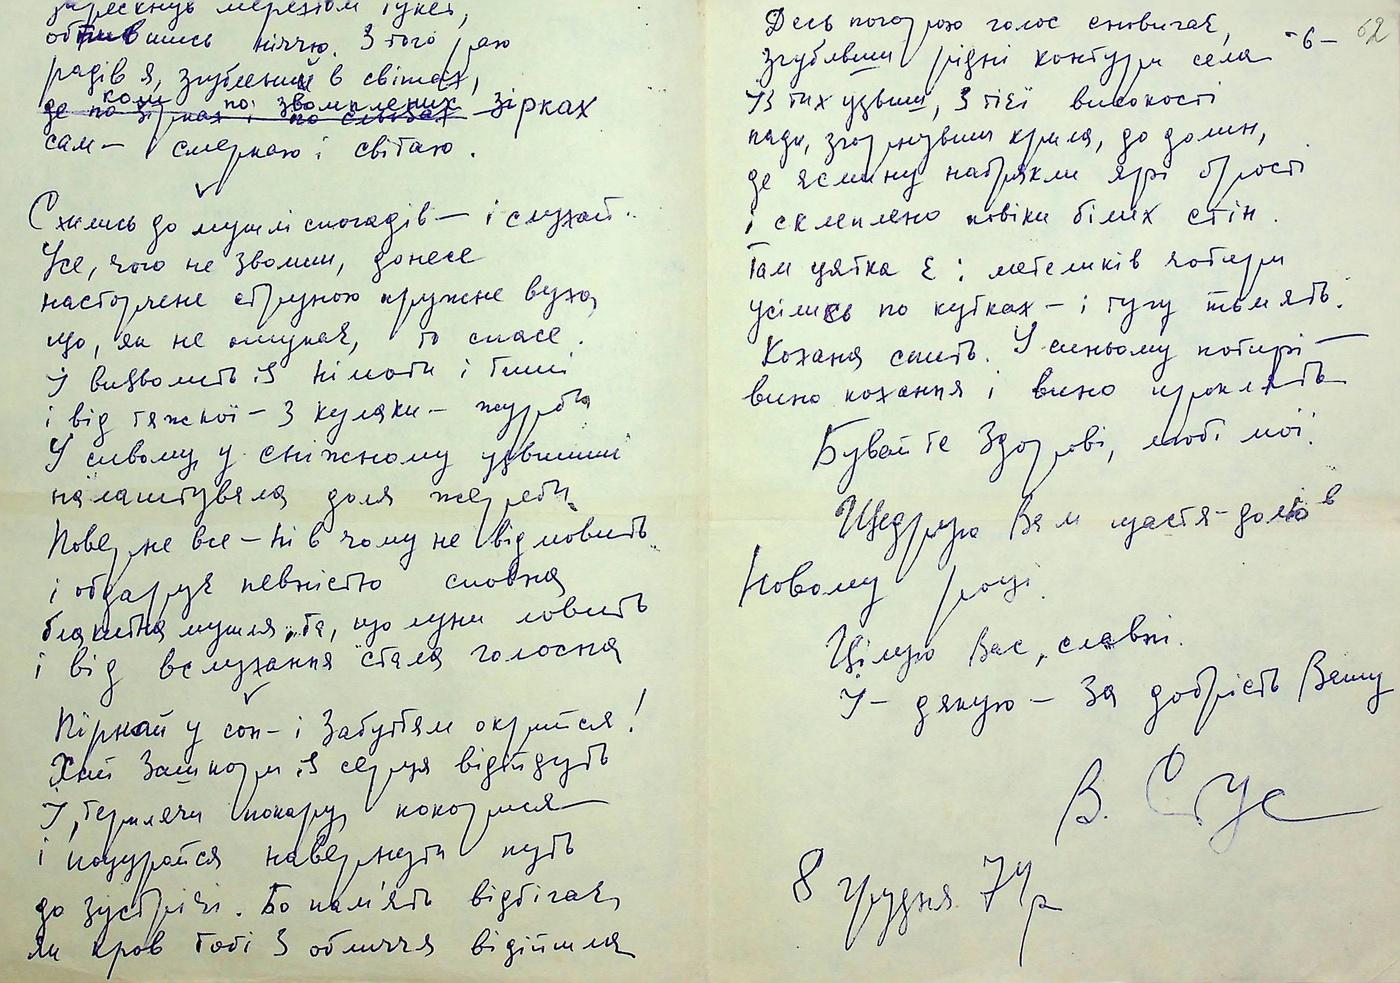 обпившись ніччю. З того раю
радів я, згублений в світах,
де коли по зволоплених зірках
сам — смеркаю і світаю.
Схились до мушлі спогадів — і слухай.
Усе, чого не зволиш, донесе
насторчене струною пружне вухо,
що, як не ошукає, то спасе.
І визволить із німоти і тиші
і від тяжкої — з кулаки — журби
У сивому, у сніжному узвишші
налаштувала доля жереби.
Поверне все — ні в чому не відмовить
і обдарує певністю сповна
блакитна мушля, та, що луни ловить
і від вслухання стала голосна
Пірнай у сон — і забуттям окрийся!
Хай зашпори із серця відійдуть
І, терплячи покару, покорися
і поцурайся навернути путь
до зустрічі. Бо пам'ять відбігає,
як кров тобі з обличчя відійшла
Десь погорою голос сновигає,
згубивши рідні контури села
Із тих узвиш, з тієї високості
пади, згорнувши крила, до долин,
де ясмину набрякли ярі брості
і склеплено повіки білих стін.
Там цятка є: метеликів чотири
усілись по кутках — і тугу тьмять.
Кохана спить. У синьому потирі —
вино кохання і вино проклять
Бувайте здорові, любі мої.
Щедрую Вам щастя-долю в
Новому році.
Цілую Вас, славні.
І — дякую — за добрість Вашу
В. Стус
8 грудня 74 р
-6-
62